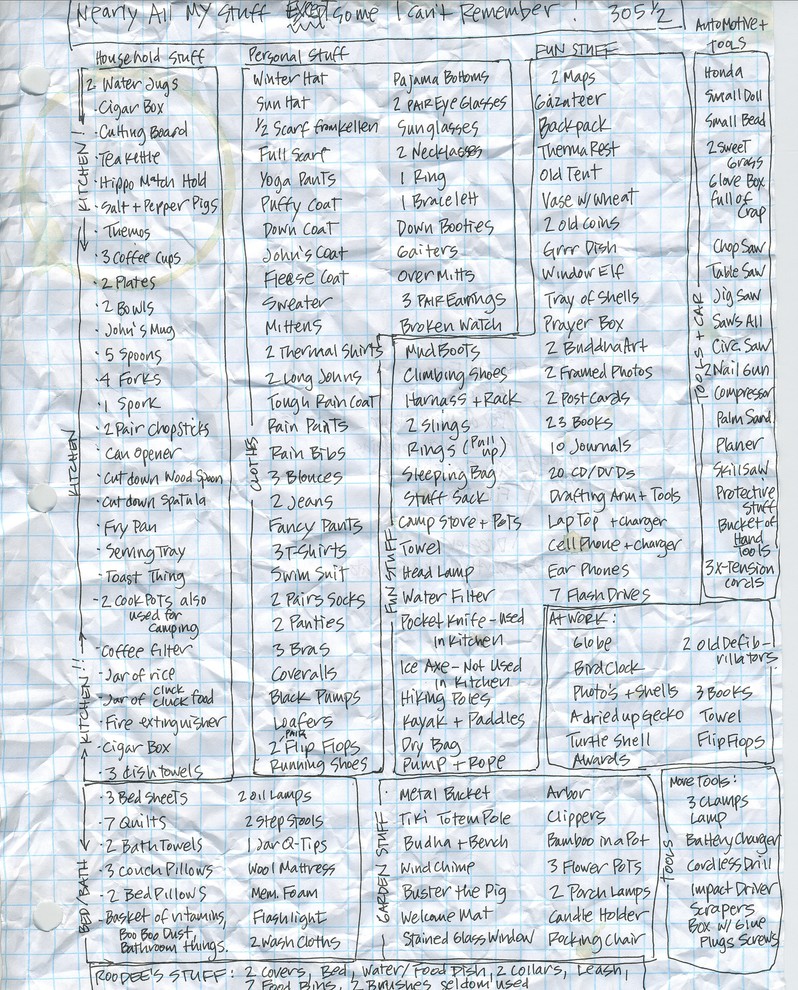 Nearly All My Stuff Except Some I Can't Remember! 305 1/2
Household Stuff
KITCHEN!
KITCHEN
KITCHEN!!
2 Water Jugs
· Cigar Box
· Cutting Board
· Tea kettle
· Hippo Match Hold
· Salt + Pepper Pigs
· Themos
· 3 Coffee Cups
· 2 Plates
· 2 Bowls
· John's Mug
· 5 Spoons
· 4 Forks
· 1 Spork
· 2 Pair Chopsticks
· Can Opener
· Cut down Wood Spoon
· Cut down Spatula
· Fry Pan
· Serving Tray
· Toast Thing
- 2 Cook Pots also
used for
camping
· Coffee filter
· Jar of rice
· Jar of cluck cluck food
· Fire extinguisher
· Cigar Box
· 3 dish towels
Personal Stuff
CLOTHS
Winter Hat
Sun Hat
1/2 Scarf from Kellen
Full Scarf
Yoga Pants
Puffy Coat
Down Coat
John's Coat
Fleese Coat
Sweater
Mittens
2 Thermal Shirts
2 Long Johns
Tough Rain Coat
Rain Pants
Rain Bibs
3 Blouces
2 Jeans
Fancy Pants
3 T-Shirts
Swim Suit
2 Pairs Socks
2 Panties
3 Bras
Coveralls
Black Pumps
Loafers
2 PAIR Flip Flops
Running Shoes
Pajama Bottoms
2 PAIR Eye Glasses
Sunglasses
2 Necklaces
1 Ring
1 Bracelett
Down Booties
Gaiters
Over Mitts
3 PAIR Earrings
Broken Watch
FUN STUFF
Mud Boots
Climbing Shoes
Harnass + Rack
2 Slings
Rings (Pull up)
Sleeping Bag
Stuff Sack
Camp Stove + Pots
Towel
Head Lamp
Water Filter
Pocket Knife - used
in Kitchen
Ice Axe - Not Used
in Kitchen
Hiking Poles
Kayak + Paddles
Dry Bag
Pump + Rope
FUN STUFF
2 Maps
Gazateer
Backpack
ThermaRest
Old Tent
Vase w/ wheat
2 old coins
Grrr Dish
Window Elf
Tray of Shells
Prayer Box
2 Buddha Art
2 Framed Photos
2 Post Cards
23 Books
10 Journals
20 CD/DVDs
Drafting Arm + Tools
Lap Top + charger
Cell Phone + charger
Ear Phones
7 Flash Drives
AutoMotive +
TOOLS
TOOLS + CAR
Honda
Small Doll
Small Bead
2 Sweet
Grass
Glove Box
full of
Crap
Chop Saw
Table Saw
Jig Saw
Saws All
Circ. Saw
2 Nail Gun
Compressor
Palm Sand
Planer
SkillSaw
Protective
Stuff
Bucket of
Hand
Tools
3 x-Tension
cords
AT WORK:
Globe
Bird Clock
Photo's + Shells
A dried up Gecko
Turtle Shell
Awards
2 old Defib-
rillators
3 Books
Towel
Flip Flops
BED/BATH
· 3 Bed Sheets
· 7 Quilts
- 2 Bath Towels
· 3 couch Pillows
- 2 Bed Pillows
- Basket of vitamins,
Boo Boo Dust,
Bathroom things.
2 oil Lamps
2 Step Stools
1 Jar Q-Tips
Wool Mattress
Mem. Foam
Flashlight
2 Wash Cloths
GARDEN STUFF
Metal Bucket
Tiki Totem Pole
Budha + Bench
Wind Chime
Buster the Pig
Welcome Mat
Stained Glass Window
Arbor
Clippers
Bamboo in a Pot
3 Flower Pots
2 Porch Lamps
Candle Holder
Rocking Chair
TOOLS
More Tools:
3 Clamps
Lamp
Battery Charger
Cordless Drill
Impact Driver
Scrapers
Box w/ Glue
Plugs Screws
ROODEE'S STUFF: 2 Covers, Bed, Water/Food Dish, 2 Collars, Leash,
2 Food Bins, 2 Brushes seldom used